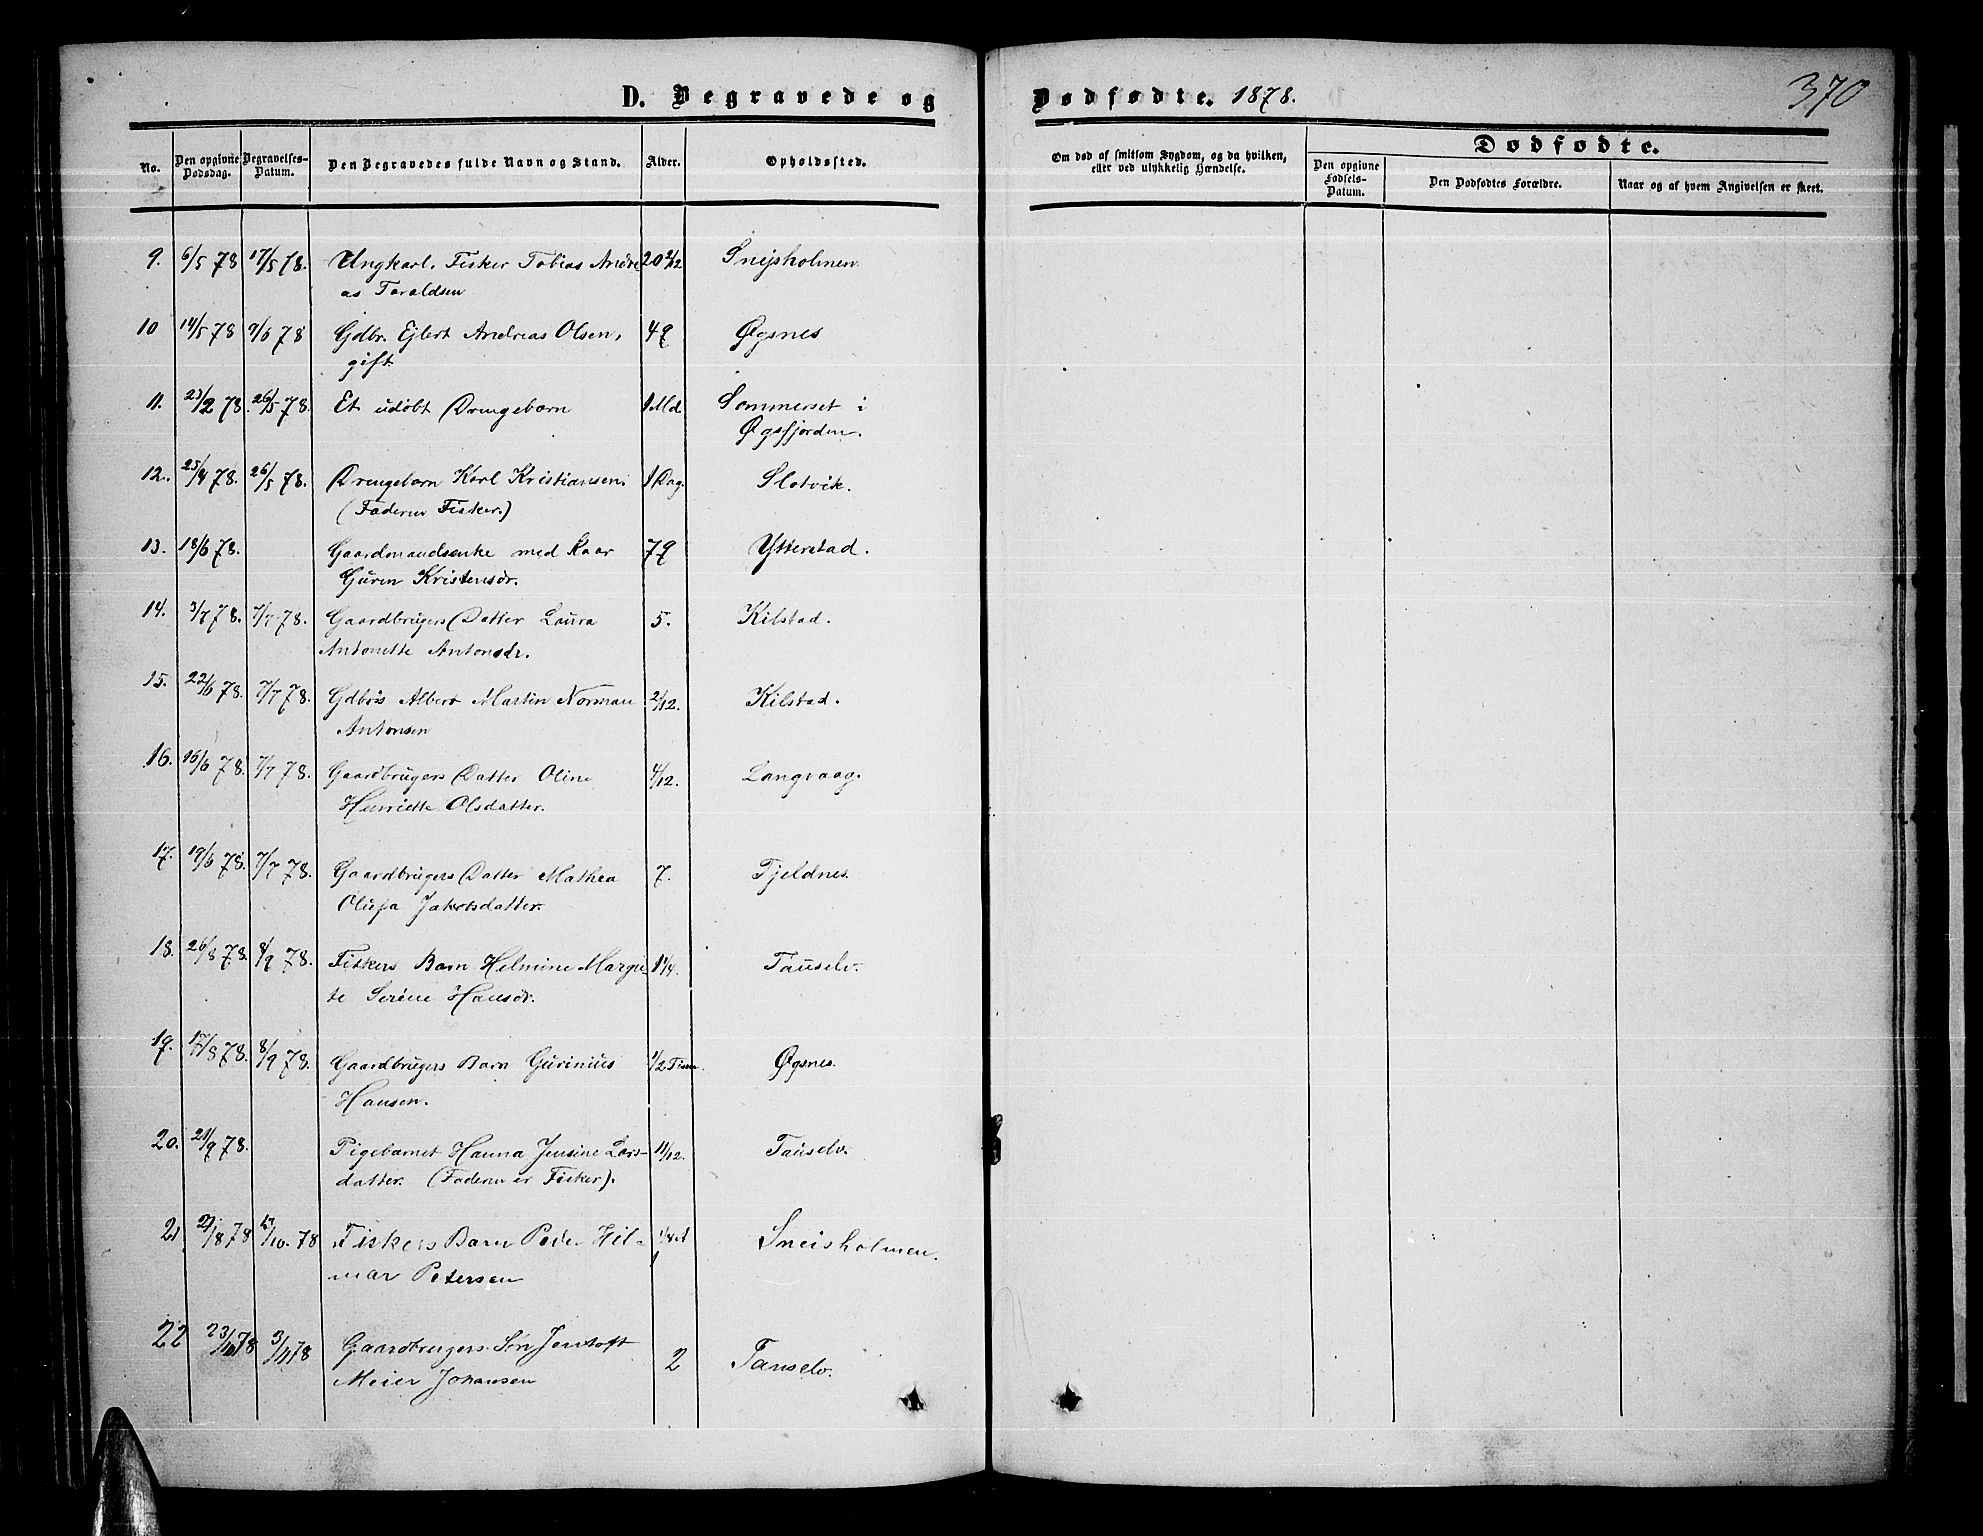 D. Begravede og Dødfødte. 1878.
370
No.
Den opgivne Dødsdag.
Begravelses-Datum.
Den Begravedes fulde Navn og Stand.
Alder.
Opholdssted.
Om død af smitsom Sygdom, og da hvilken,
eller ved ulykkelig Hændelse.
Dødfødte.
Den opgivne Fødsels-Datum.
Den Dødfødtes Forældre.
Naar og af hvem Angivelsen er skeet.
9. 6/5 78 17/5 78. Ungkarl, Fisker Tobias Andre 20 2/12 Sneisholmen
as Taraldsen
10 14/5 78 9/6 78 Gdbr. Ejlert Andreas Olsen, 49 Øgsnes
gift.
11. 23/2 78. 26/5 78. Et udøbt Drengebarn 1 Md Sommerset i
Øgsfjorden.
12. 25/4 78. 26/5 78. Drengebarn Karl Kristiansen. 1 Dag. Slotvik.
(Faderen Fisker.)
13. 18/6 78. Gaardmandsenke med Kaar 79 Ytterstad.
Guren Kristensdr.
14. 3/7 78. 7/7 78. Gaardbrugers Datter Laura 5. Kilstad.
Antonette Antonsdr.
15. 22/6 78. 7/7 78. Gdbrs Albert Martin Norman 2/12. Kilstad.
Antonsen
16. 16/6 78. 7/7 78. Gaardbrugers Datter Oline 4/12. Langvaag.
Henriette Olsdatter.
17. 19/6 78. 7/7 78. Gaardbrugers Datter Mathea 7. Fjeldnes.
Olufa Jakobsdatter.
18. 26/8 78. 8/9 78. Fiskers Barn Hilmine Margre- 1 1/4. Tauselv.
te Serine Hansdr.
19. 17/8 78. 8/9 78. Gaardbrugers Barn Gurinius 1/2 Time. Øgsnes.
Hansen.
20. 21/9 78. Pigebarnet Hanna Jensine Lars- 11/12. Tauselv.
datter. (Faderen er Fisker).
21 27/8 78 13/10. 78 Fiskers Barn Peder Hil- 1/4 A Sneisholmen.
mar Petersen
22 23/10 78 3/11 78 Gaardbrugers Søn Jentoft 2 Tauselv.
Meier Johansen